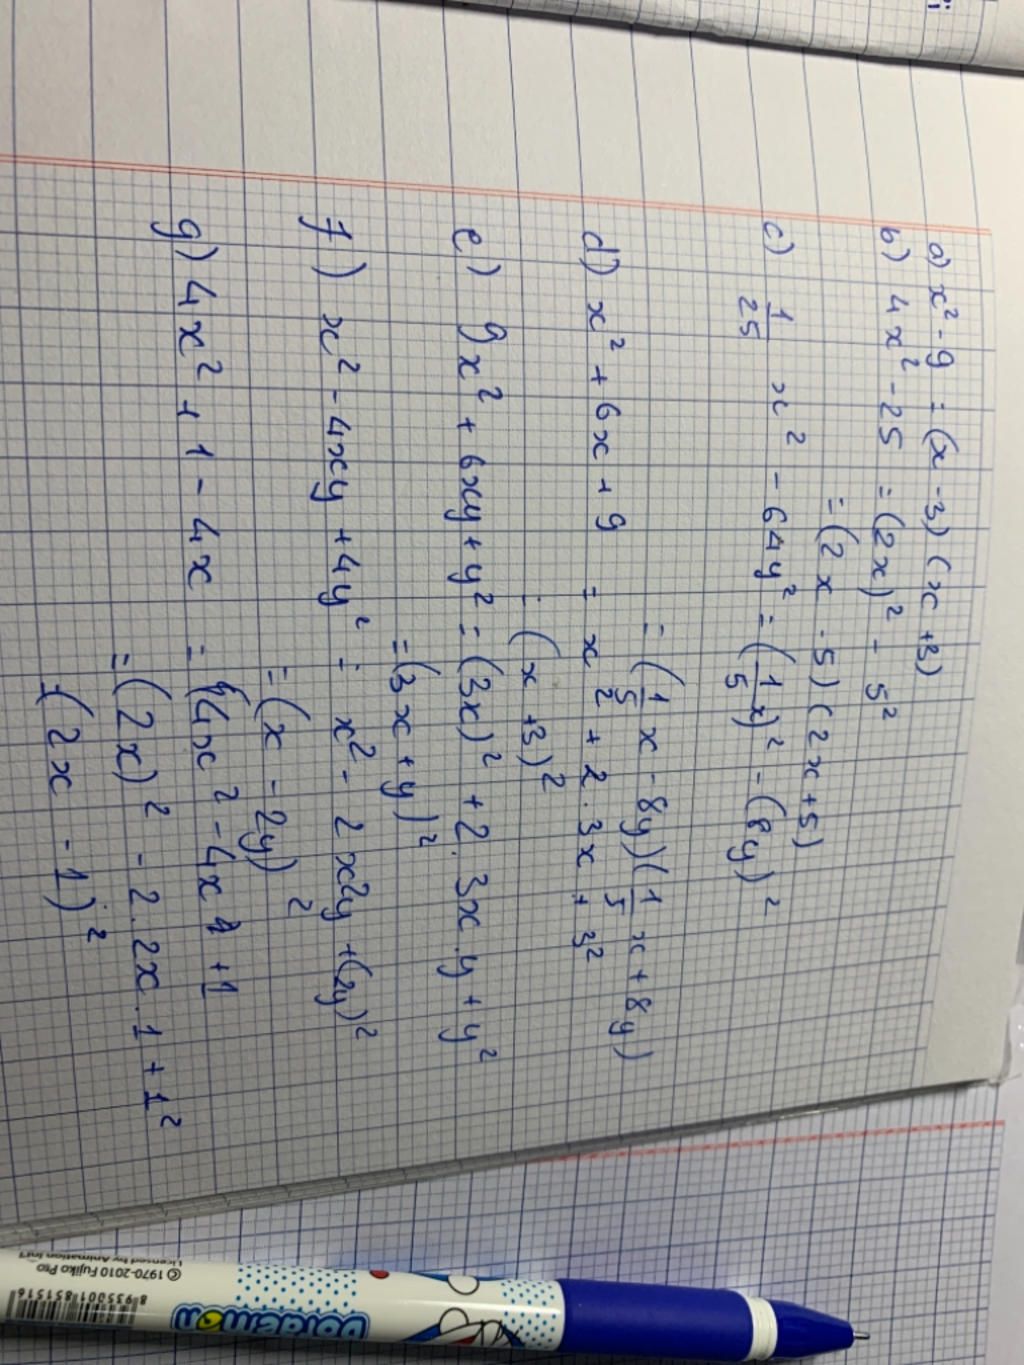 a) x² - 9 = (x - 3) (x + 3)
b) 4x² - 25 = (2x)² - 5²
= (2x - 5) (2x + 5)
c) 1/25 x² - 64y² = (1/5 x)² - (8y)²
= (1/5 x - 8y) (1/5 x + 8y)
d) x² + 6x + 9 = x² + 2 . 3x + 3²
= (x + 3)²
e) 9x² + 6xy + y² = (3x)² + 2 . 3x . y + y²
= (3x + y)²
f) x² - 4xy + 4y² = x² - 2x2y + (2y)²
= (x - 2y)²
g) 4x² + 1 - 4x = (4x² - 4x + 1
= (2x)² - 2 . 2x . 1 + 1²
= (2x - 1)²
Doraemon
8 935001 851516
© 1970-2010 Fujiko Pro
Licensed by Animation Int'l